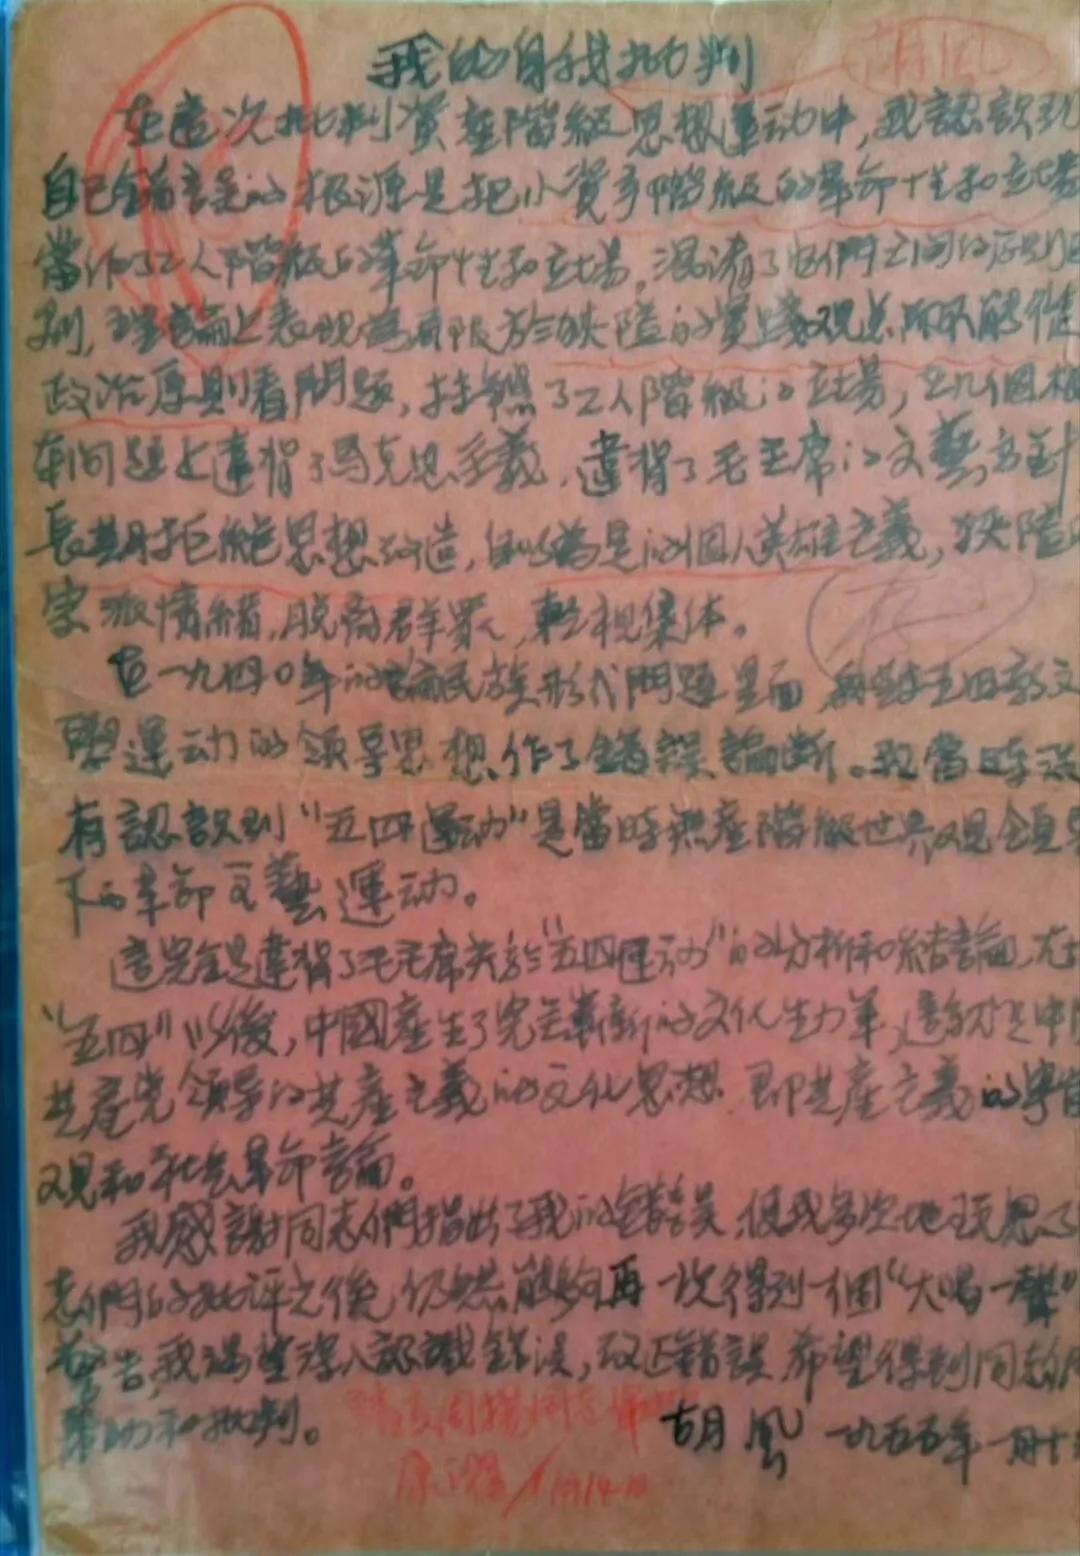 我的自我批判
胡風
在這次批判資產階級思想運动中，我認識到
自己錯誤的根源是把小資產階級的革命性和立場
當作了工人階級的革命性和立場，混淆了它們之间的原則
別，理論上表現為有限於狹隘的實踐观点
政治原則看問題，了工人階級的立場，在几個根
本问題上違背了马克思主義，違背了毛主席的文藝方針
長期拒絕思想改造，自以為是的個人英雄主義，狹隘
宗派情緒，脫离群眾，輕視集体。
在一九四〇年的論民族形式問題里面，我對五四新文
學運动的領导思想，作了錯誤論断。我當時沒
有認識到“五四運动”是當時無產階級世界观領导
下的革命文藝運动。
這完全是違背了毛主席关於“五四運动”的分析和結論，在
“五四”以後，中國產生了完全嶄新的文化生力军，這就是中
共產党領导的共產主義的文化思想，即共產主義的宇宙
观和社会革命論。
我感謝同志們指出了我的錯誤，使我多次地
志們的批评之後，仍然能夠再一次得到一個“大喝一聲”
警告，我渴望深入認識錯误，改正錯誤，希望得到同志們
帮助和批判。
胡風 一九五五年一月十